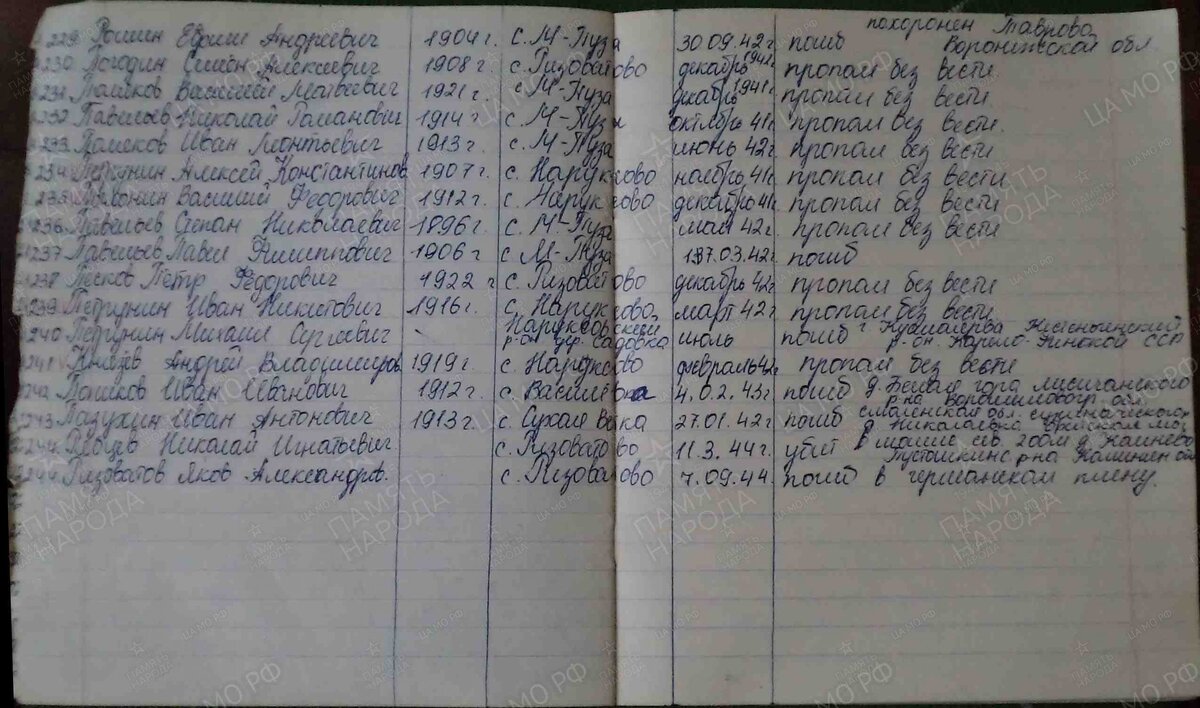 229 Рошин Ефим Андреевич 1904 г. с. М-Пуза 30.09.42 г. погиб похоронен Таврово Воронежской обл.
230 Погодин Семён Алексеевич 1908 г. с. Ризоватово декабрь 1942 пропал без вести
231 Пошков Василий Матвеевич 1921 г. с. М-Пуза декабрь 1941 г. пропал без вести
232 Павельев Николай Романович 1914 г. с. М-Пуза октябрь 41 г. пропал без вести.
233 Пошков Иван Леонтьевич 1913 г. с. М-Пуза июнь 42 г. пропал без вести
234 Петрунин Алексей Константинов 1907 г. с. Наруксово ноябрь 41 г. пропал без вести
235 Василий Федорович 1912 г. с. Наруксово декабрь 41 г. пропал без вести
236 Павельев Степан Николаевич 1896 г. с. М-Пуза май 42 г. пропал без вести
237 Павельев Павел Филиппович 1906 г. с. М-Пуза 17.03.42 г. погиб
238 Песков Петр Федорович 1922 г с. Ризоватово декабрь 42 г. пропал без вести
239 Петрунин Иван Никитович 1916 г. с. Наруксово, март 42 г. пропал без вести
240 Петрунин Михаил Сергеевич - Наруксовский р-он дер. Садовка июль погиб г. Кестеньгинский р-он. Карело-Финской ССР
241 Князев Андрей Владимиров 1919 г. с. Наруксово февраль 42 г. пропал без вести
242 Пошков Иван Иванович 1912 г. с. Василевка 4.02.43 г. погиб д. Белая гора Лисичанского р-на Ворошиловогр. обл.
243 Пазухин Иван Антонович 1913 г. с. Сухая Вака 27.01.42 г. погиб Смоленская обл. д. Николаевка
244 Николай Игнатьевич с. Ризоватово 11.3.44 г. убит 200 м д. Пустошкинс р-на Калинин обл
244 Ризоватов Яков Александров. с. Ризоватово 7.09.44. погиб в германском плену.
ПАМЯТЬ НАРОДА
ЦА МО РФ